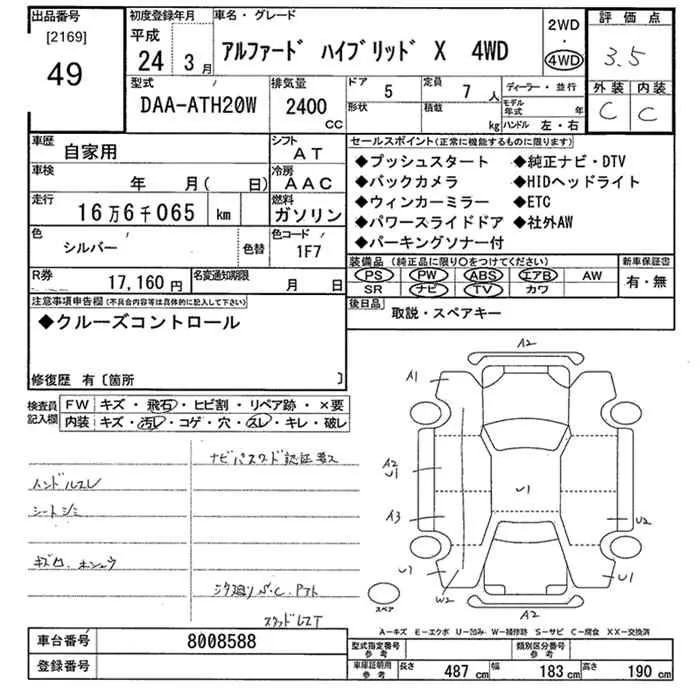 出品番号 初度登録年月 車名・グレード 評価点
[2169] 平成
49 24年 3月 アルファード ハイブリッド X 4WD 2WD・4WD 3.5
型式 排気量 ドア 5 定員 7人 ディーラー・並行 外装 内装
DAA-ATH20W 2400 CC 形状 積載 kg モデル年式 年 C C
ハンドル 左・右
車歴 自家用 シフト AT セールスポイント(正常に機能するものに限ります)
車検 年 月( 日) 冷房 AAC
走行 16万6千065 km 燃料 ガソリン
色 シルバー 色替 色コード 1F7
◆プッシュスタート ◆純正ナビ・DTV
◆バックカメラ ◆HIDヘッドライト
◆ウィンカーミラー ◆ETC
◆パワースライドドア ◆社外AW
◆パーキングソナー付
R券 17,160円 名変通知期限 月 日
装備品 (純正品に限り○をつけてください) 新車保証書
PS PW ABS エアB AW 有・無
SR ナビ TV カワ
注意事項申告欄(不具合内容等は具体的に記入して下さい) 後日品 取説・スペアキー
◆クルーズコントロール
修復歴 有〔箇所 〕
検査員記入欄 FW キズ・飛石・ヒビ割・リペア跡・×要
内装 キズ・汚レ・コゲ・穴・スレ・キレ・破レ
ナビパスワード認証
ハンドルスレ
シートシミ
A2
A1
A2
U1
U1
A3
U2
U1
W2
A2
スペア
A-キズ E-エクボ U-凹み W-補修跡 S-サビ C-腐食 XX-交換済
車台番号 8008588 型式指定番号 参考 類別区分番号 参考
登録番号 車庫証明用 参考 長さ 487cm 幅 183cm 高さ 190cm